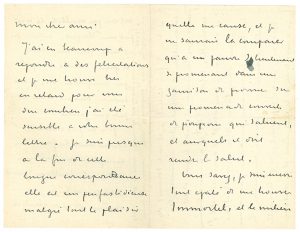 mon cher ami
J'ai eu beaucoup a
repondre a des felicitations
et je me trouve très
en retard pour vous
dire combien j'ai été
sensible a votre bonne
lettre. Je suis presque
a la fin de cette
longue correspondance
elle est un peu fastidieuse
malgré tout le plaisir
qu'elle me cause, et je
ne saurais la comparer
qu'a un pauvre lieutenant
se promenant dans une
garnison de province sur
une promenade
de pioupious qui saluent,
et auxquels il doit
rendre le salut.
Vous savez, je suis encore
tout epaté de me trouver
Immortel, et le